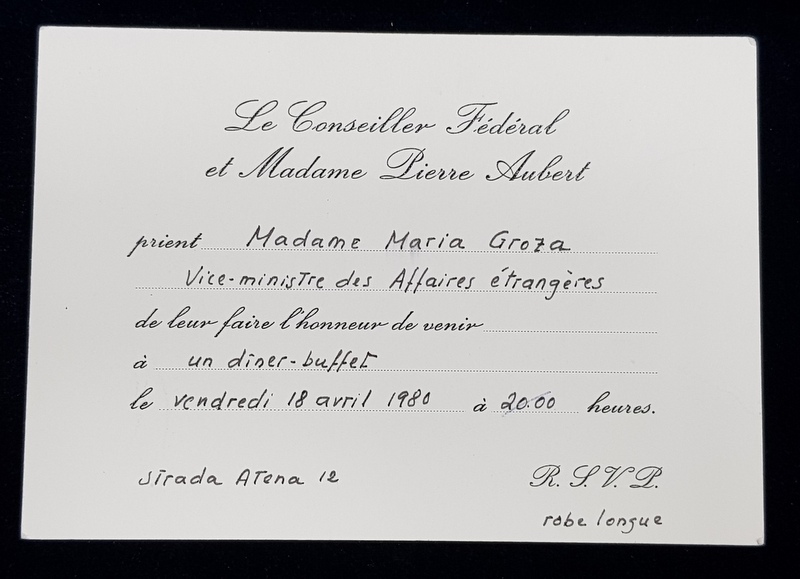 Le Conseiller Fédéral
et Madame Pierre Aubert
prient Madame Maria Groza
Vice-ministre des Affaires étrangères
de leur faire l'honneur de venir
à un dîner-buffet
le vendredi 18 avril 1980 à 20.00 heures.
strada Atena 12 R. S. V. P.
robe longue